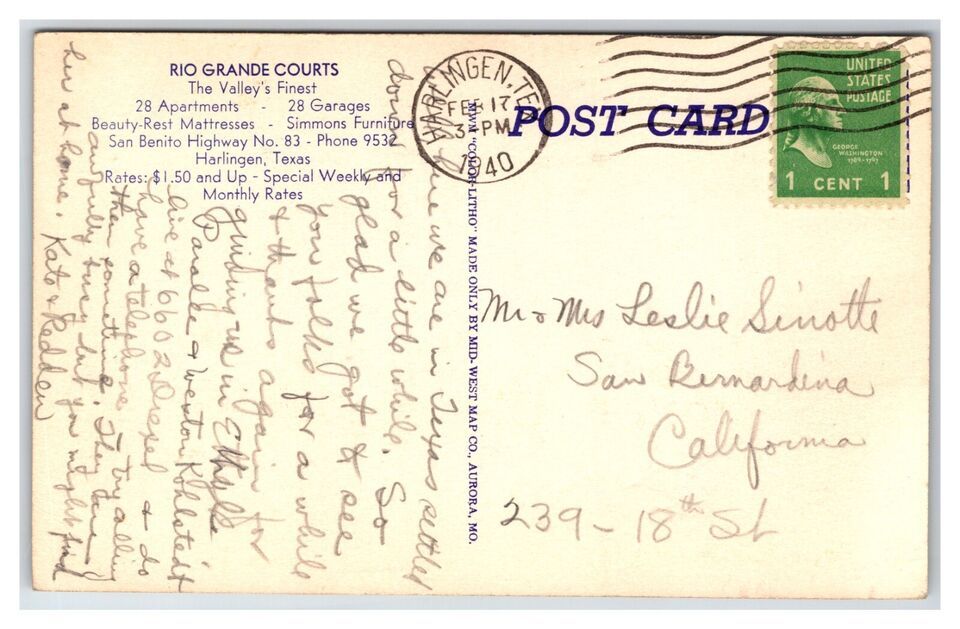 RIO GRANDE COURTS
The Valley's Finest
28 Apartments - 28 Garages
Beauty-Rest Mattresses - Simmons Furniture
San Benito Highway No. 83 - Phone 9532
Harlingen, Texas
Rates: $1.50 and Up - Special Weekly and
Monthly Rates
HARLINGEN, TEX.
FEB 17
3 PM
1940
POST CARD
UNITED
STATES
POSTAGE
GEORGE
WASHINGTON
1789-1797
1 CENT 1
MWM "COLOR-LITHO" MADE ONLY BY MID-WEST MAP CO., AURORA, MO.
Here we are in Texas settled
down for a little while. So
glad we got to see
you folks for a while
& thanks again for
guiding us in
& Weston Kohlstedt
live at 6602 Drexel & do
have a telephone try calling
them sometime. They are
awfully busy but you might find
her at home. Kato & Redden
Mr & Mrs Leslie Sinotte
San Bernardina
California
239 - 18th St